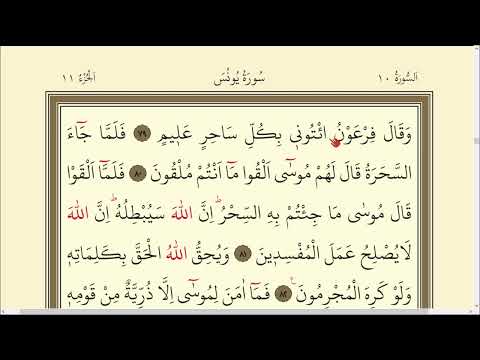 السُّورَةُ ١٠ سُورَةُ يُونُسَ الْجُزْءُ ١١
وَقَالَ فِرْعَوْنُ ائْتُونٖي بِكُلِّ سَاحِرٍ عَلٖيمٍ ٧٩ فَلَمَّا جَٓاءَ
السَّحَرَةُ قَالَ لَهُمْ مُوسٰٓى اَلْقُوا مَٓا اَنْتُمْ مُلْقُونَ ٨٠ فَلَمَّٓا اَلْقَوْا
قَالَ مُوسٰى مَا جِئْتُمْ بِهِ السِّحْرُؕ اِنَّ اللّٰهَ سَيُبْطِلُهُؕ اِنَّ اللّٰهَ
لَا يُصْلِحُ عَمَلَ الْمُفْسِدٖينَ ٨١ وَيُحِقُّ اللّٰهُ الْحَقَّ بِكَلِمَاتِهٖ
وَلَوْ كَرِهَ الْمُجْرِمُونَ ٨٢ فَمَٓا اٰمَنَ لِمُوسٰٓى اِلَّا ذُرِّيَّةٌ مِنْ قَوْمِهٖ